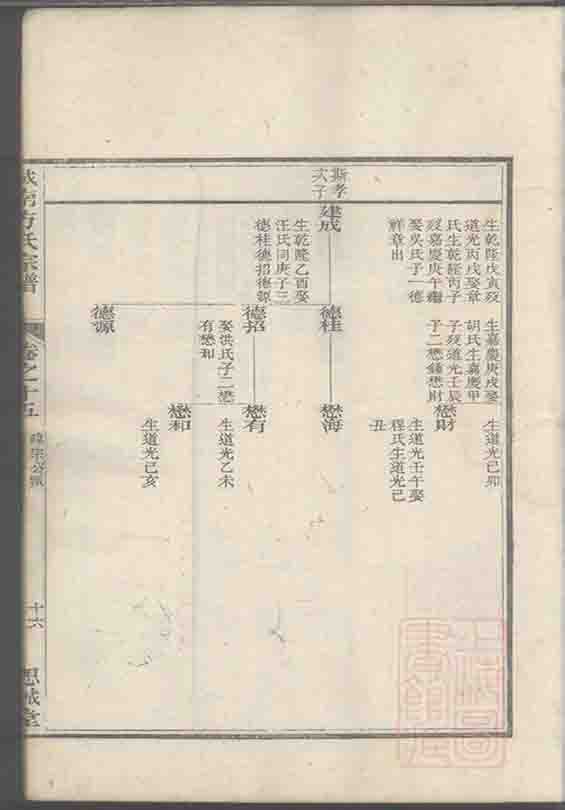 斯孝
次子
生乾隆戊寅歿
道光丙戌娶章
氏生乾隆丙子
歿嘉慶庚午繼
娶吳氏子一德
祥章出
建成
生乾隆乙酉娶
汪氏同庚子三
德桂德招德源
生嘉慶庚戌娶
胡氏生嘉慶甲
子歿道光壬辰
子二懋鍾懋財
德桂
德招
娶洪氏子二懋
有懋和
德源
生道光己卯
懋財
生道光壬午娶
程氏生道光己
丑
懋海
懋有
生道光乙未
懋和
生道光己亥
方氏宗譜
卷之十五
十六
思誠堂
上海圖
書館藏